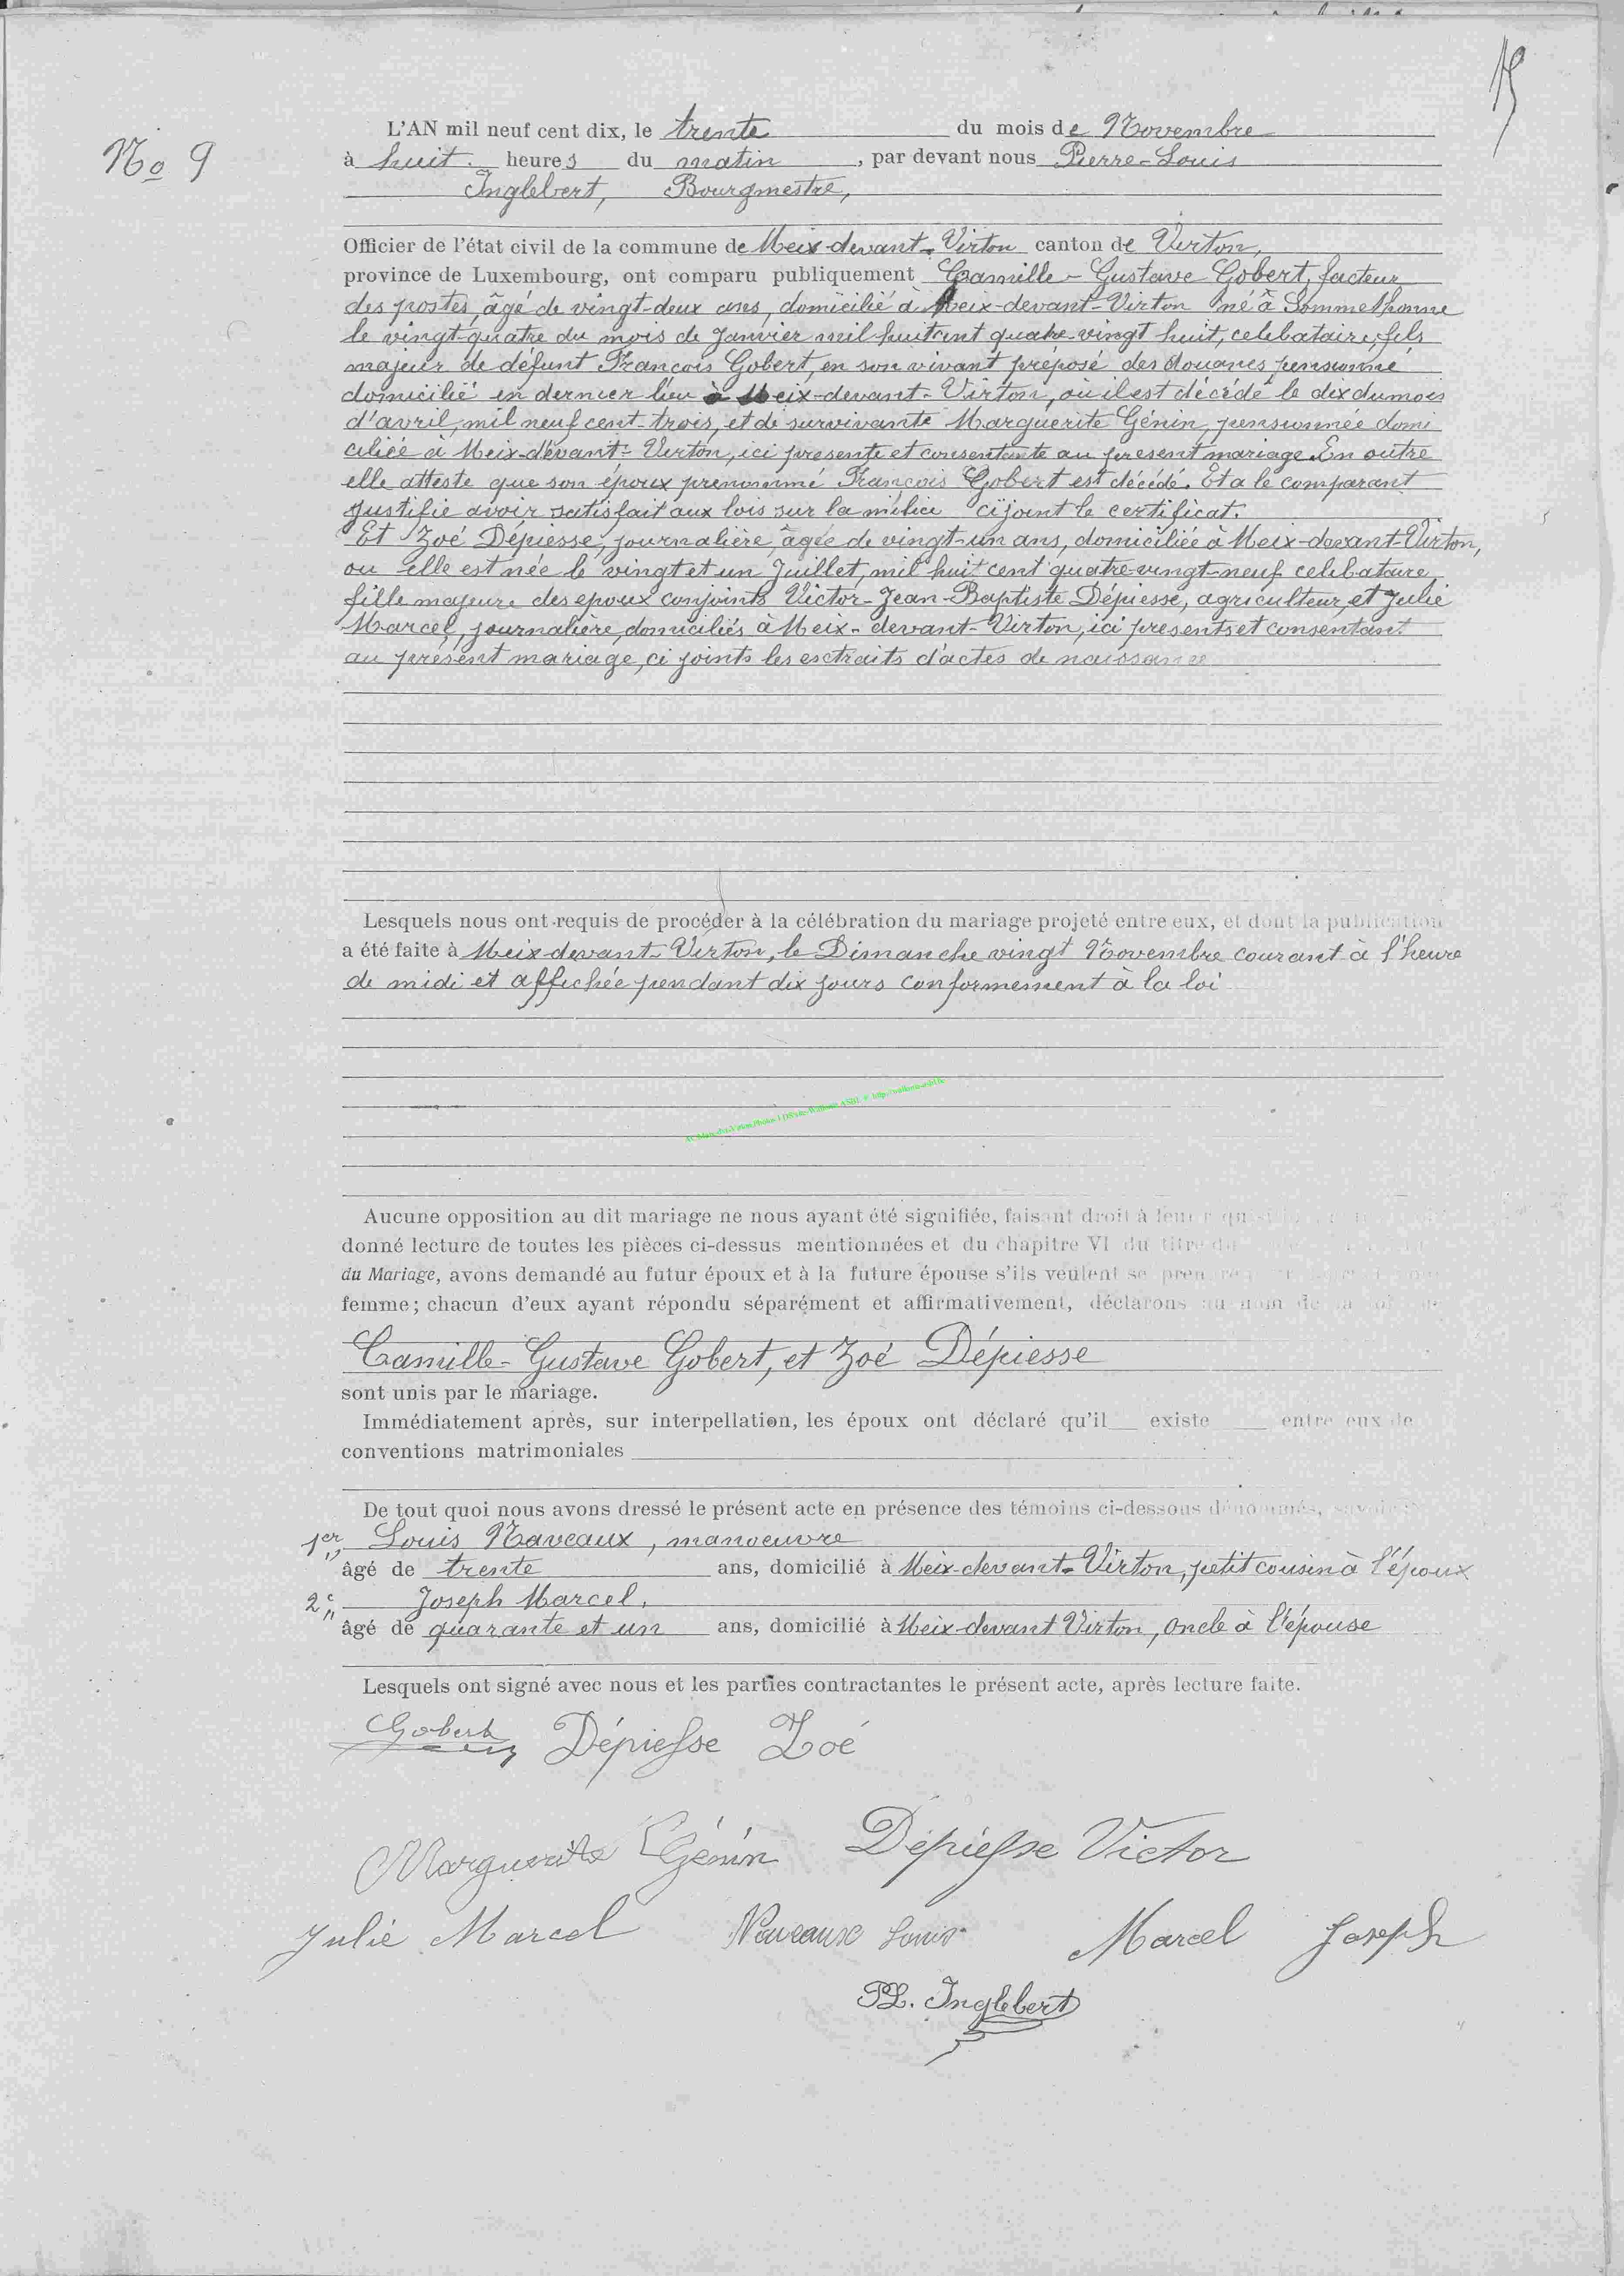 15
No 9
L'AN mil neuf cent dix, le trente du mois de Novembre
à huit heures du matin, par devant nous Pierre-Louis
Inglebert, Bourgmestre,
Officier de l'état civil de la commune de Meix-devant-Virton canton de Virton,
province de Luxembourg, ont comparu publiquement Camille-Gustave Gobert, facteur
des postes, âgé de vingt-deux ans, domicilié à Meix-devant-Virton né à Sommethonne
le vingt-quatre du mois de Janvier mil huit cent quatre-vingt huit, celebataire, fils
majeur de défunt François Gobert, en son vivant préposé des douanes pensionné
domicilié en dernier lieu à Meix-devant-Virton, où il est décédé le dix du mois
d'avril, mil neuf cent-trois, et de survivante Marguerite Génin, pensionnée domi
ciliée à Meix-devant-Virton, ici presente et consentante au present mariage. En outre
elle atteste que son époux prénommé François Gobert est décédé. Et a le comparant
justifie avoir satisfait aux lois sur la milice ci joint le certificat.
Et Zoé Dépiesse, journalière, âgée de vingt-un ans, domiciliée à Meix-devant-Virton,
ou elle est née le vingt et un Juillet, mil huit cent quatre-vingt-neuf celebataire
fille majeure des epoux conjoints Victor-Jean-Baptiste Dépiesse, agriculteur, et Julie
Marcel, journalière, domiciliés à Meix-devant-Virton, ici presents et consentant
au présent mariage, ci joints les extraits d'actes de naissance
Lesquels nous ont requis de procéder à la célébration du mariage projeté entre eux, et dont la publication
a été faite à Meix-devant-Virton, le Dimanche vingt Novembre courant à l'heure
de midi et affichée pendant dix jours conformement à la loi
Aucune opposition au dit mariage ne nous ayant été signifiée, faisant droit à leur
donné lecture de toutes les pièces ci-dessus mentionnées et du chapitre VI du titre du
du Mariage, avons demandé au futur époux et à la future épouse s'ils veulent se prendre
femme; chacun d'eux ayant répondu séparément et affirmativement, déclarons au nom de la
Camille-Gustave Gobert, et Zoé Dépiesse
sont unis par le mariage.
Immédiatement après, sur interpellation, les époux ont déclaré qu'il existe entre eux de
conventions matrimoniales
De tout quoi nous avons dressé le présent acte en présence des témoins ci-dessous dénommés, savoir
1er Louis Naveaux, manoeuvre
âgé de trente ans, domicilié à Meix-devant-Virton, petit cousin à l'époux
2e Joseph Marcel,
âgé de quarante et un ans, domicilié à Meix-devant Virton, oncle à l'épouse
Lesquels ont signé avec nous et les parties contractantes le présent acte, après lecture faite.
Gobert Dépiesse Zoé
Marguerite Génin Dépiesse Victor
Julie Marcel Naveaux Louis Marcel Joseph
PL. Inglebert